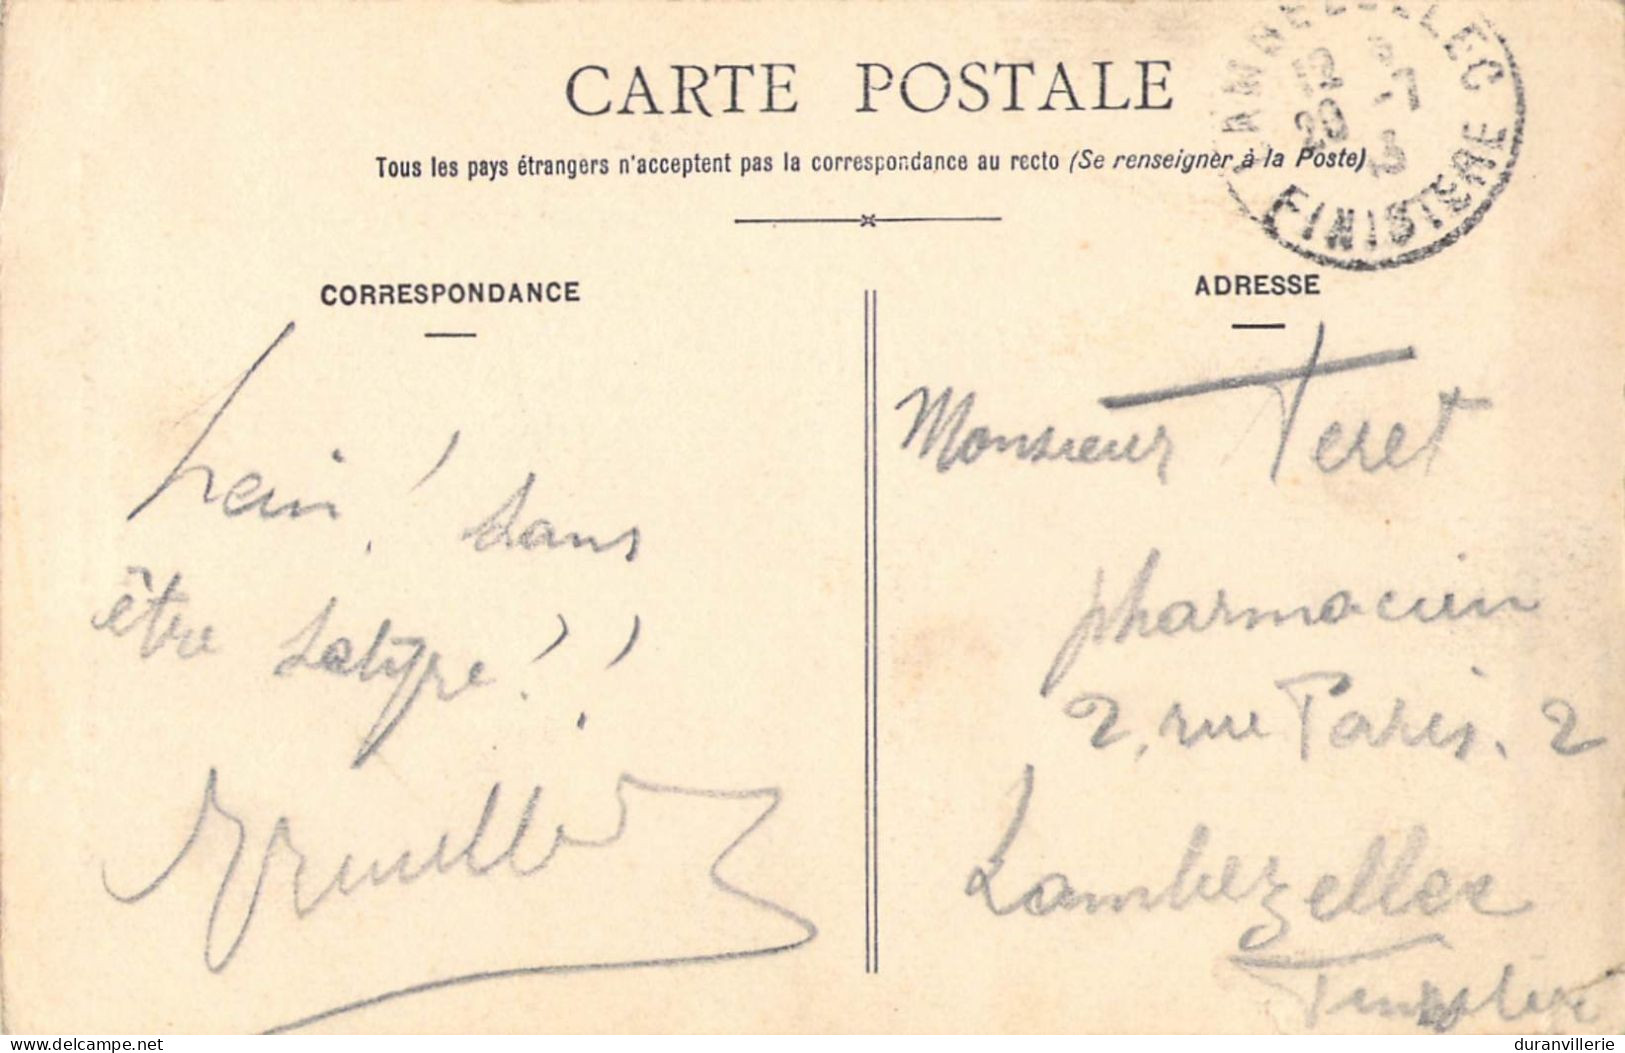 CARTE POSTALE
Tous les pays étrangers n'acceptent pas la correspondance au recto (Se renseigner à la Poste)
FINISTERE
CORRESPONDANCE
hein! Sans
être satyre!!
ADRESSE
Monsieur Teret
pharmacien
2, rue Paris. 2
Lambezellec
Finistère
delcampe.net
duranvillerie